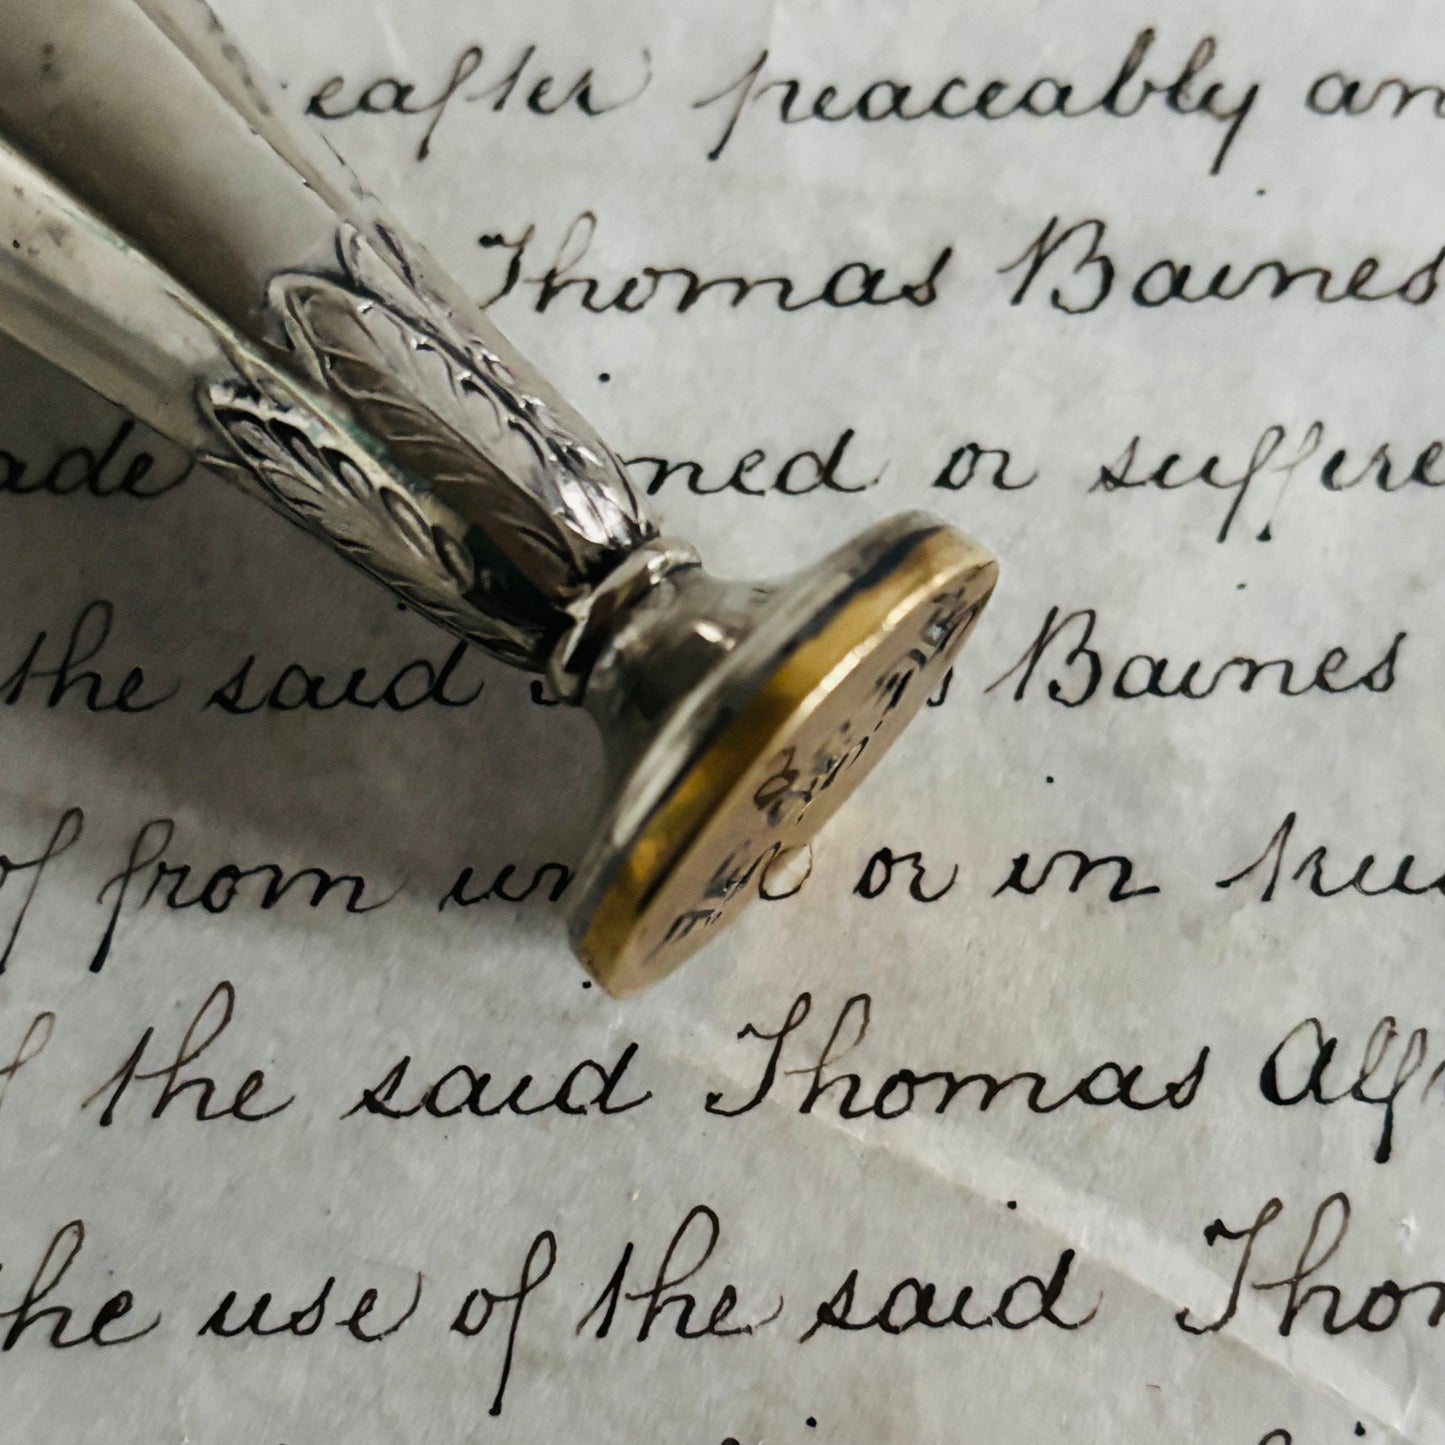 eafter peaceably an
Thomas Baines
ade ned or suffere
the said s Baines
of from un or in trus
the said Thomas Alf
he use of the said Thom